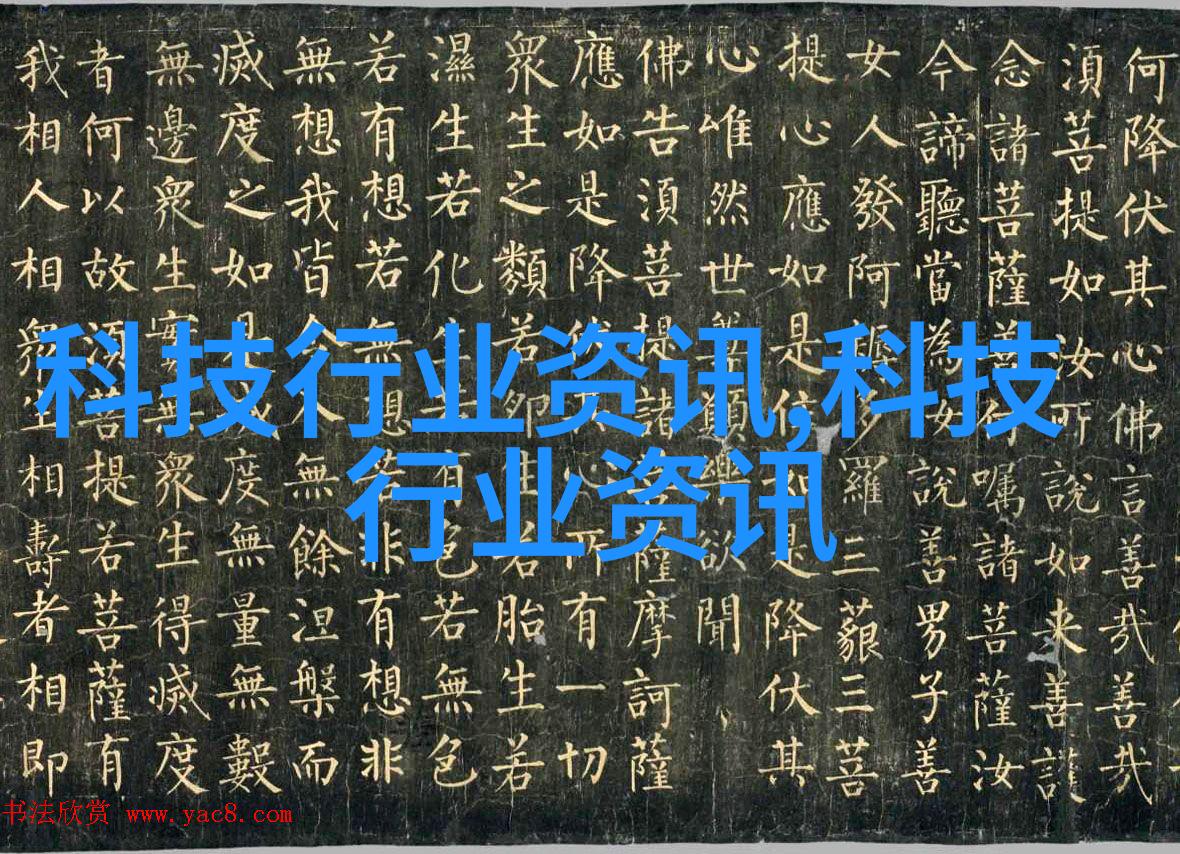 科技行业资讯,科技
行业资讯
何降伏其心佛言善哉善哉
須菩提如汝所說如来善護
念諸菩薩善付嘱諸菩薩汝
今諦聽當為汝說善男子善
女人發阿耨多羅三藐三菩
提心應如是住如是降伏其
心唯然世尊願樂欲聞
佛告須菩提諸菩薩摩訶薩
應如是降伏其心所有一切
眾生之類若卵生若胎生若
濕生若化生若有色若無色
若有想若無想若非有想非
無想我皆令入無餘涅槃而
滅度之如是滅度無量無數
無邊眾生實無眾生得滅度
者何以故須菩提若菩薩有
我相人相眾生相壽者相即
书法欣赏 www.yac8.com